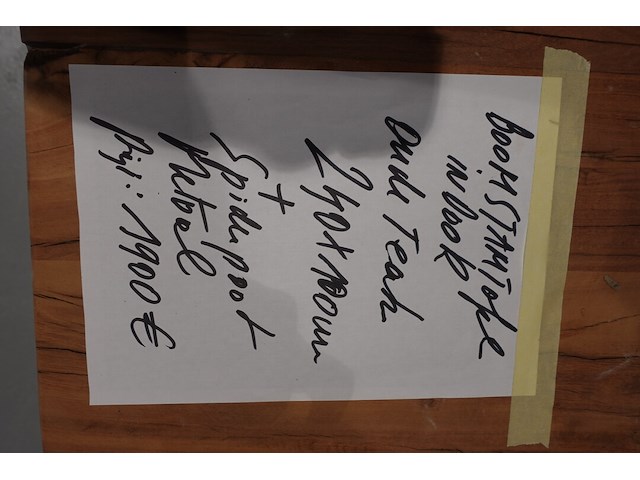 Boomstamtafel
in look
Oude Teak
240x100cm
+
Spiderpoot
Metaal
Prijs: 1900€